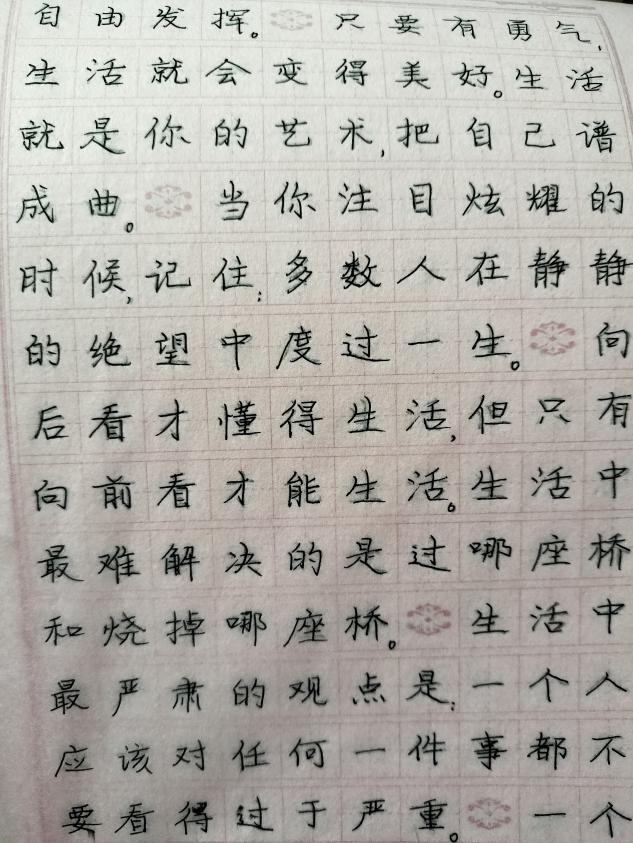 自由发挥。只要有勇气,
生活就会变得美好。生活
就是你的艺术,把自己谱
成曲。当你注目炫耀的
时候,记住:多数人在静静
的绝望中度过一生。向
后看才懂得生活,但只有
向前看才能生活。生活中
最难解决的是过哪座桥
和烧掉哪座桥。生活中
最严肃的观点是:一个人
应该对任何一件事都不
要看得过于严重。一个